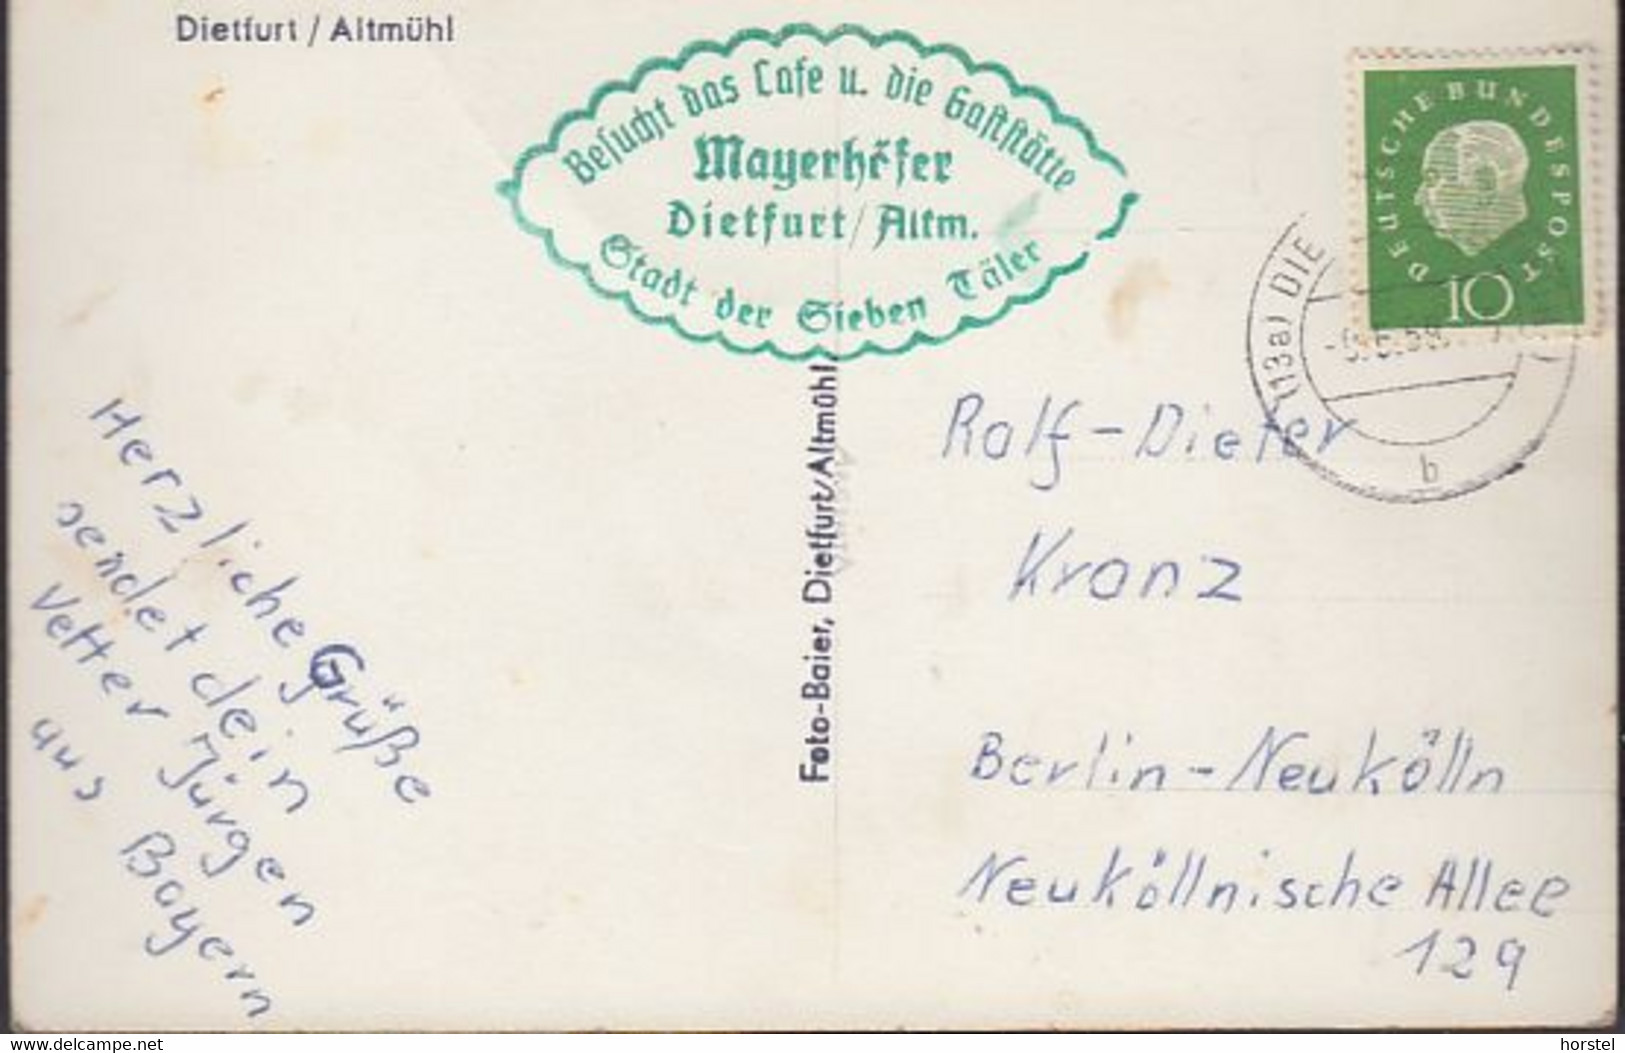 Dietfurt / Altmühl
Besucht das Cafe u. die Gaststätte
Mayerhöfer
Dietfurt / Altm.
Stadt der Sieben Täler
DEUTSCHE BUNDESPOST
10
(13a) DIE
b
Foto-Baier, Dietfurt/Altmühl
Herzliche Grüße
sendet dein
Vetter Jürgen
aus Bayern
Ralf-Dieter
Kranz
Berlin-Neukölln
Neuköllnische Allee
129
www.delcampe.net
horstel